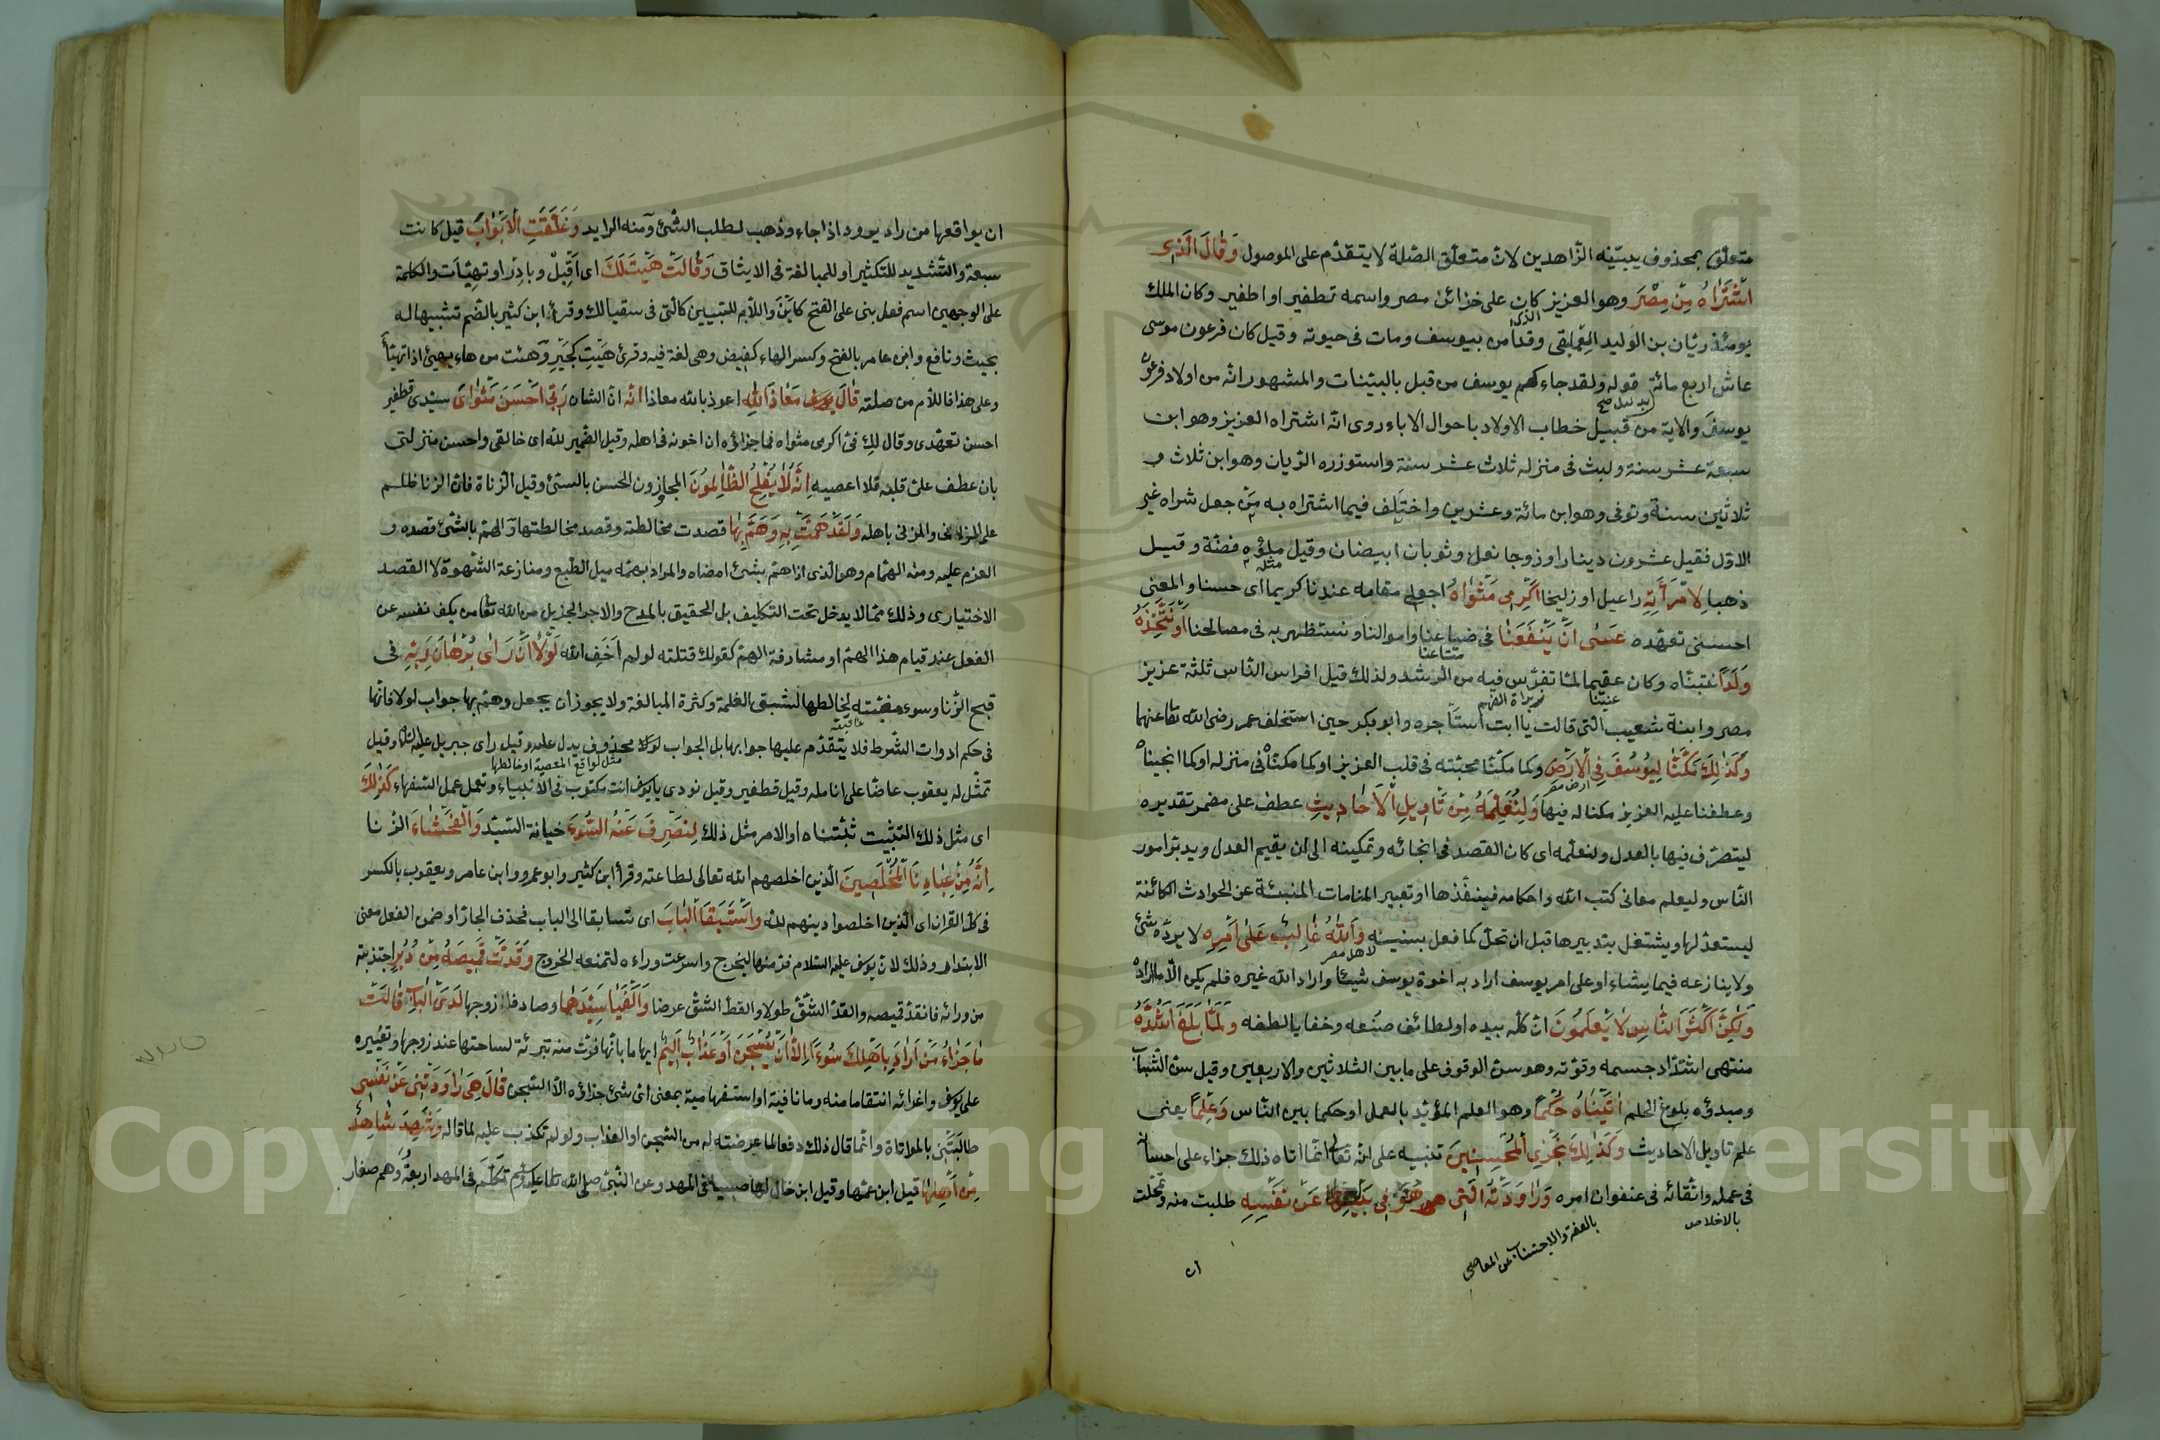 متعلق بمحذوف يبينه الزاهدين لان متعلق الصلة لا يتقدم على الموصول وَقَالَ الَّذِى
اشْتَرَاهُ مِنْ مِصْرَ وهو العزيز الذى كان على خزائن مصر واسمه قطفير او اطفير وكان الملك
يومئذ ريان بن الوليد العمليقى وقد امن بيوسف ومات فى حيوته وقيل كان فرعون موسى
عاش اربع مائة قوله ولقد جاءكم يوسف من قبل بالبينات والمشهور انه من اولاد فرعون
يوسف والاية من قبيل خطاب الاولاد باحوال الاباء روى انه اشتراه العزيز وهو ابن
سبعة عشر سنة ولبث فى منزله ثلاث عشر سنة واستوزره الريان وهو ابن ثلاث و
ثلاثين سنة وتوفى وهو ابن مائة وعشرين واختلف فيما اشتراه به من جعل شراه غير
الاول فقيل عشرون دينارا وزوجا نعل وثوبان ابيضان وقيل ملؤه فضة وقيل
ذهبا لِامْرَأَتِهِ راعيل او زليخا اَكْرِمِى مَثْوَاهُ اجعلى مقامه عندنا كريما اى حسنا والمعنى
احسنى تعهده عَسَى اَنْ يَنْفَعَنَا فى ضياعنا واموالنا ونستظهر به فى مصالحنا اَوْ نَتَّخِذَهُ
وَلَدًا نتبناه وكان عقيما لما تفرس فيه من الرشد ولذلك قيل افرس الناس ثلثة عزيز
مصر وابنة شعيب التى قالت يا ابت استأجره وابو بكر حين استخلف عمر رضى الله تعا عنهما
وَكَذَلِكَ مَكَّنَّا لِيُوسُفَ فِى الْاَرْضِ وكما مكنا محبته فى قلب العزيز او كما مكناه فى منزله او كما انجيناه
وعطفنا عليه العزيز مكنا له فيها وَلِنُعَلِّمَهُ مِنْ تَأوِيلِ الْاَحَادِيثِ عطف على مضمر تقديره
ليتصرف فيها بالعدل ولنعلمه اى كان القصد فى انجائه وتمكينه الى ان يقيم العدل ويدبر امور
الناس وليعلم معانى كتب الله واحكامه فينفذها او تعبير المنامات المنبئة عن الحوادث الكائنة
ليستعد لها ويشتغل بتدبيرها قبل ان تحل كما فعل بسنيه وَاللهُ غَالِبٌ عَلَى اَمْرِهِ لا يرده شئ
ولا ينازعه فيما يشاء او على امر يوسف اراد به اخوة يوسف شيئا واراد الله غيره فلم يكن الا ما اراده
وَلَكِنَّ اَكْثَرَ النَّاسِ لَا يَعْلَمُونَ ان كله بيده او لطائف صنعه وخفايا لطفه وَلَمَّا بَلَغَ اَشُدَّهُ
منتهى اشتداد جسمه وقوته وهو سن الوقوف على ما بين الثلاثين والاربعين وقيل سن الشباب
ومبدؤه بلوغ الحلم اٰتَيْنَاهُ حُكْمًا وهو العلم المؤيد بالعمل او حكما بين الناس وَعِلْمًا يعنى
علم تاويل الاحاديث وَكَذَلِكَ نَجْزِى الْمُحْسِنِينَ تنبيه على انه تعالى انما اتاه ذلك جزاء على احسانه
فى عمله واتقائه فى عنفوان امره وَرَاوَدَتْهُ الَّتِى هُوَ فِى بَيْتِهَا عَنْ نَفْسِهِ طلبت منه وتمحلت
بالاخلاص
بالعفة والاجتناب عن المعاصى
ان
ان يواقعها من راد يرود اذا جاء وذهب لطلب الشئ ومنه الرايد وَغَلَّقَتِ الْاَبْوَابَ قيل كانت
سبعة والتشديد للتكثير او للمبالغة فى الايثاق وَقَالَتْ هَيْتَ لَكَ اى اقبل وبادر او تهيئت والكلمة
على الوجهين اسم فعل بنى على الفتح كاين واللام للتبيين كالتى فى سقيا لك وقرأ ابن كثير بالضم تشبيها له
بحيث ونافع وابن عامر بالفتح وكسر الهاء كغيض وهى لغة فيه وقرئ هَيْتِ كجير وهئت من هاء يهيئ اذا تهيأ
وعلى هذا فاللام من صلته قَالَ مَعَاذَ اللهِ اعوذ بالله معاذا اِنَّهُ ان الشان رَبِّى اَحْسَنَ مَثْوَاىَ سيدى قطفير
احسن تعهدى وقال لك فى اكرمى مثواه فما جزاؤه ان اخونه فى اهله وقيل الضمير لله اى خالقى واحسن منزلتى
بان عطف على قلبه فلا اعصيه اِنَّهُ لَا يُفْلِحُ الظَّالِمُونَ المجازون الحسن بالسئ وقيل الزناة فان الزنا ظلم
على الزانى والمزنى باهله وَلَقَدْ هَمَّتْ بِهِ وَهَمَّ بِهَا قصدت مخالطة وقصد مخالطتها والهم بالشئ قصده و
العزم عليه ومنه الهمام وهو الذى اذا هم بشئ امضاه والمراد بهمه ميل الطبع ومنازعة الشهوة لا القصد
الاختيارى وذلك مما لا يدخل تحت التكليف بل الحقيق بالمدح والاجر الجزيل من الله تعا من يكف نفسه عن
الفعل عند قيام هذا الهم او مشارفة الهم كقولك قتلته لو لم اخف الله لَوْلَا اَنْ رَاٰى بُرْهَانَ رَبِّهِ فى
قبح الزنا وسوء مغبته لخالطها لشبق الغلمة وكثرة المبالغة ولا يجوز ان يجعل وهم بها جواب لولا فانها
فى حكم ادوات الشرط فلا يتقدم عليها جوابها بل الجواب محذوف يدل عليه وقيل راى جبريل عليه السلام وقيل
تمثل له يعقوب عاضا على انامله وقيل قطفير وقيل نودى يا يوسف انت مكتوب فى الانبياء وتعمل عمل السفهاء كَذَلِكَ
اى مثل ذلك التثبيت ثبتناه او الامر مثل ذلك لِنَصْرِفَ عَنْهُ السُّوءَ خيانة السيد وَالْفَحْشَاءَ الزنا
اِنَّهُ مِنْ عِبَادِنَا الْمُخْلَصِينَ الذين اخلصهم الله تعالى لطاعته وقرأ ابن كثير وابو عمرو وابن عامر ويعقوب بالكسر
فى كل القران اى الذين اخلصوا دينهم لله وَاسْتَبَقَا الْبَابَ اى تسابقا الى الباب فحذف الجار او ضمن الفعل معنى
الابتدار وذلك لان يوسف عليه السلام فر منها ليخرج واسرعت وراءه لتمنعه الخروج وَقَدَّتْ قَمِيصَهُ مِنْ دُبُرٍ اجتذبته
من ورائه فانقد قميصه والقد الشق طولا والقط الشق عرضا وَاَلْفَيَا سَيِّدَهَا وصادفا زوجها لَدَى الْبَابِ قَالَتْ
مَا جَزَاءُ مَنْ اَرَادَ بِاَهْلِكَ سُوءًا اِلَّا اَنْ يُسْجَنَ اَوْ عَذَابٌ اَلِيمٌ ايهاما بانها فرت منه تبرئة لساحتها عند زوجها وتغييره
على يوسف واغرائه انتقاما منه وما نافية او استفهامية بمعنى اى شئ جزاؤه الا السجن قَالَ هِىَ رَاوَدَتْنِى عَنْ نَفْسِى
طالبتنى بالمواتاة وانما قال ذلك دفعا لما عرضته له من السجن او العذاب ولو لم تكذب عليه لما قاله وَشَهِدَ شَاهِدٌ
مِنْ اَهْلِهَا قيل ابن عمها وقيل ابن خال لها صبيا فى المهد وعن النبى صلى الله تعا عليه وسلم تكلم فى المهد اربعة وهم صغار
Copyright © King Saud University